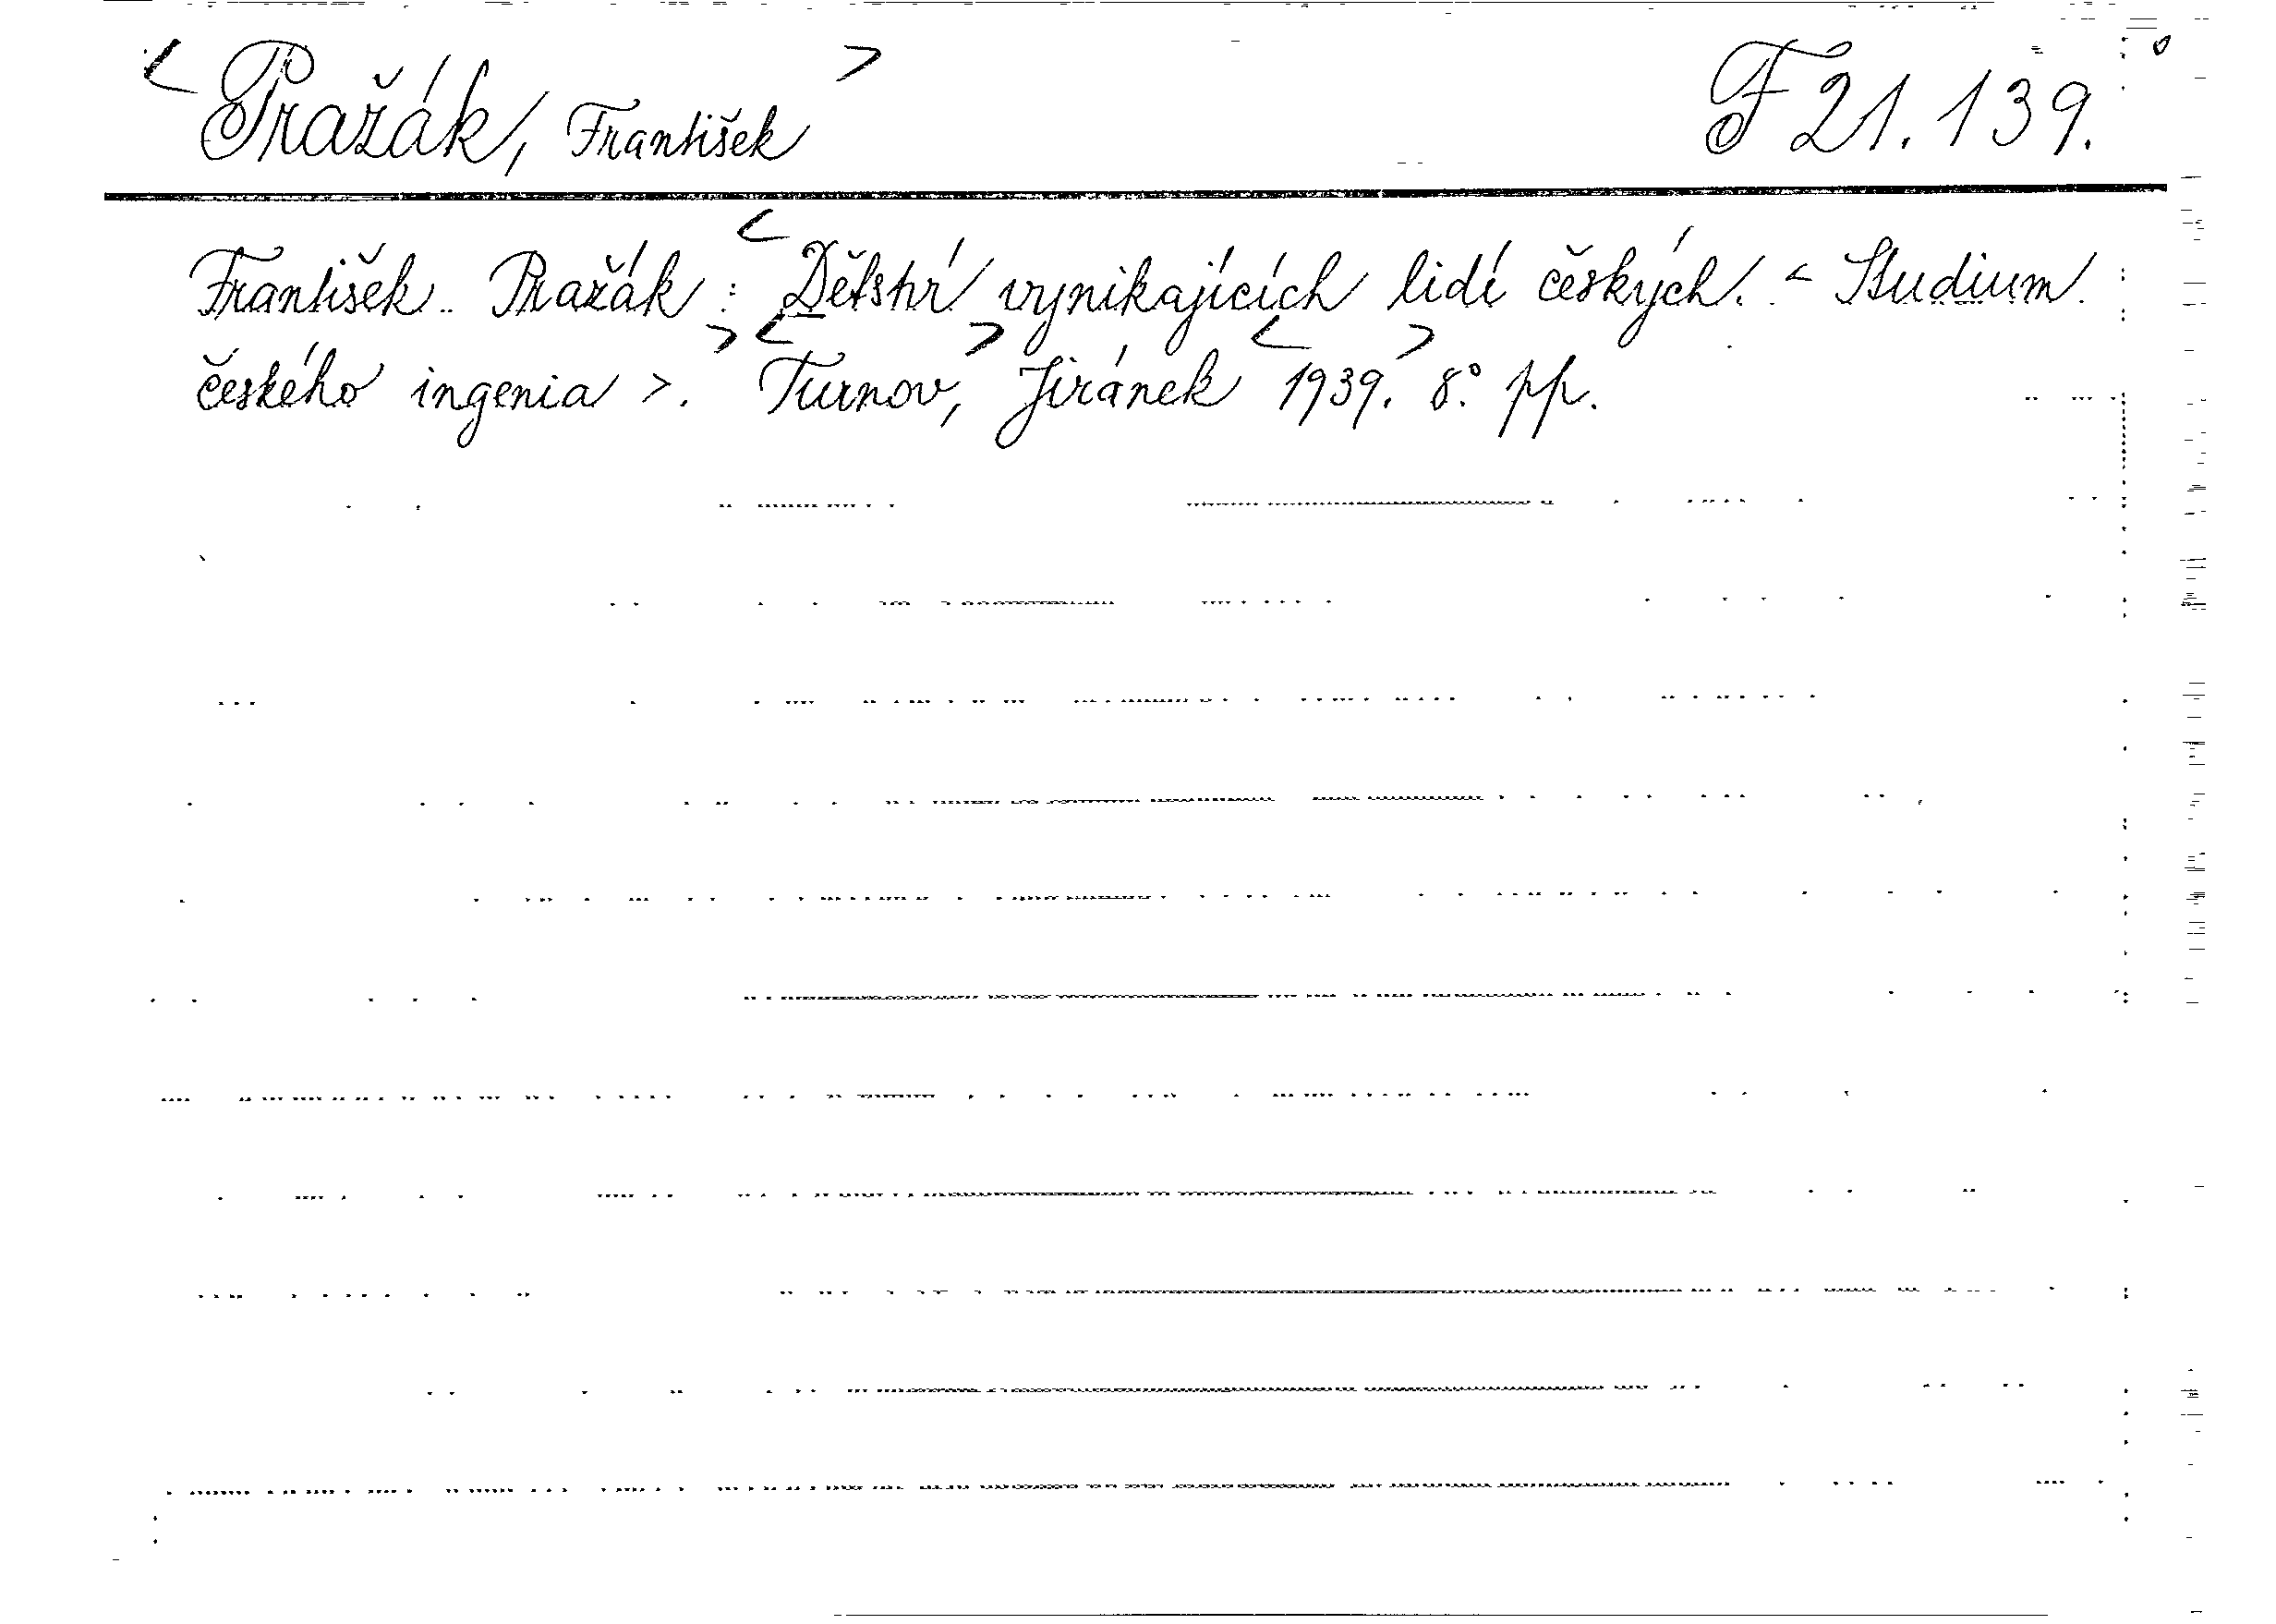 < Pražák, František > F 21.139.
František Pražák : < Dětství vynikajících lidí českých. < Studium
českého ingenia >. > < Turnov, > Jiránek < 1939. > 8.° pp.